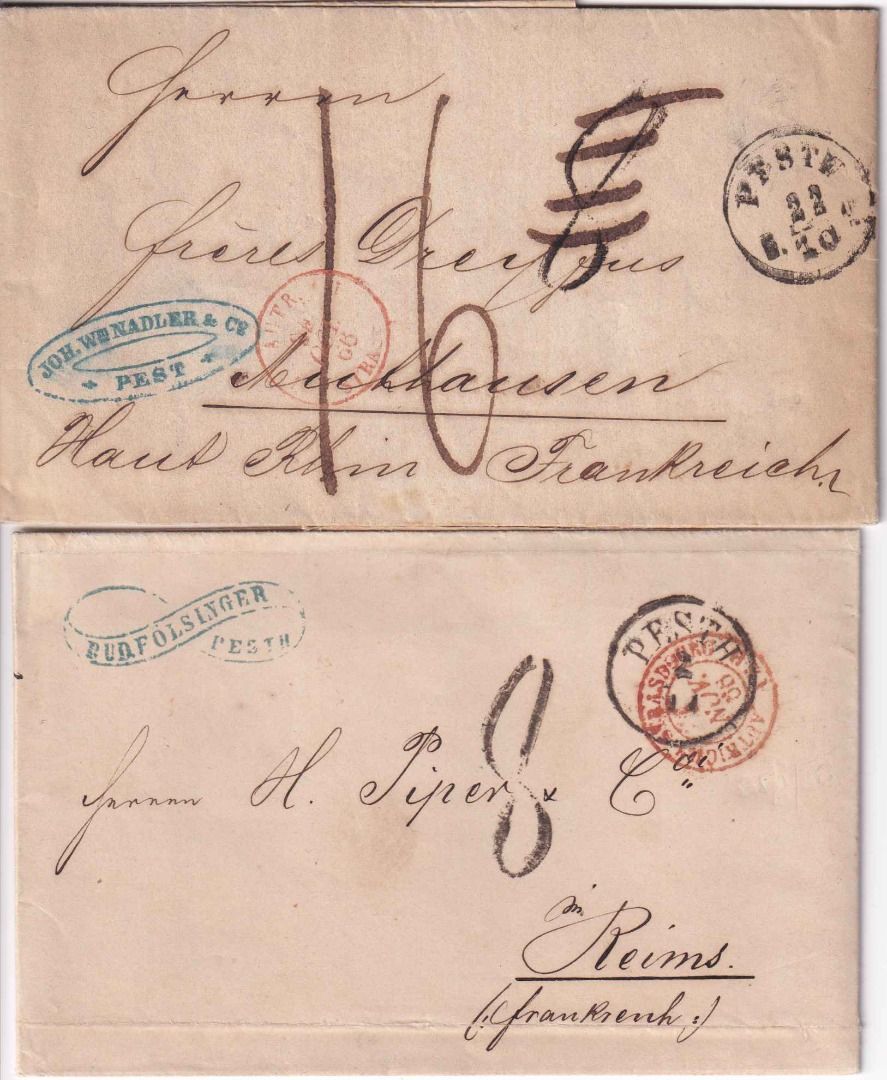 Herren
16
8
PESTH
22
10
Frères Dreyfus
JOH. Wm NADLER & Co
PEST
AUTR.
66
Mulhausen
Haut Rhin Frankreich
RUD. FÖLSINGER
PESTH
PESTH
STRASBOURG
NOV.
66
AUTRICHE
8
Herren H. Piper & Co
in
Reims.
(: Frankreich :)